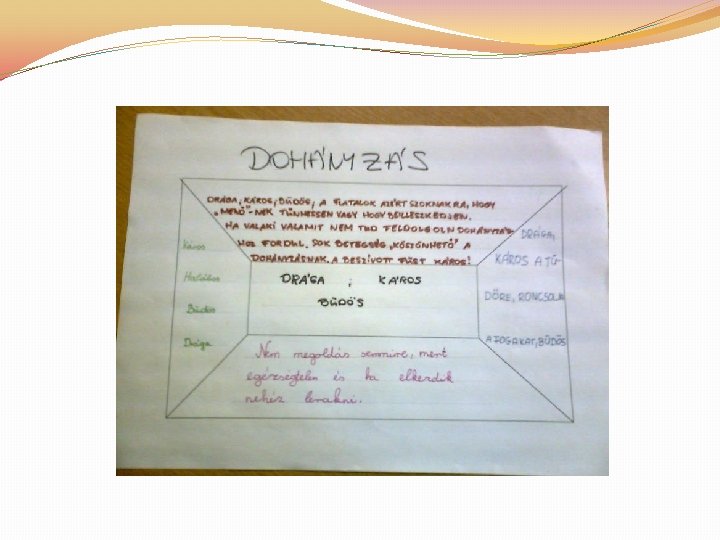 DOHÁNYZÁS
DRÁGA, KÁROS, BÜDÖS, A FIATALOK AZÉRT SZOKNAK RÁ, HOGY
„MENŐ"-NEK TŰNHESSEN VAGY HOGY BEILLESZKEDJEN.
HA VALAKI VALAMIT NEM TUD FELDOLGOZNI DOHÁNYZÁS-
HOZ FORDUL. SOK BETEGSÉG „KÖSZÖNHETŐ" A
DOHÁNYZÁSNAK. A BESZÍVOTT FÜST KÁROS!
Káros
Halálos
Büdös
Drága
DRÁGA, KÁROS
BÜDÖS
DRÁGA,
KÁROS A TÜ-
DŐRE, RONCSOLJA
A FOGAKAT, BÜDÖS
Nem megoldás semmire, mert
egészségtelen és ha elkezdik
nehéz lerakni.